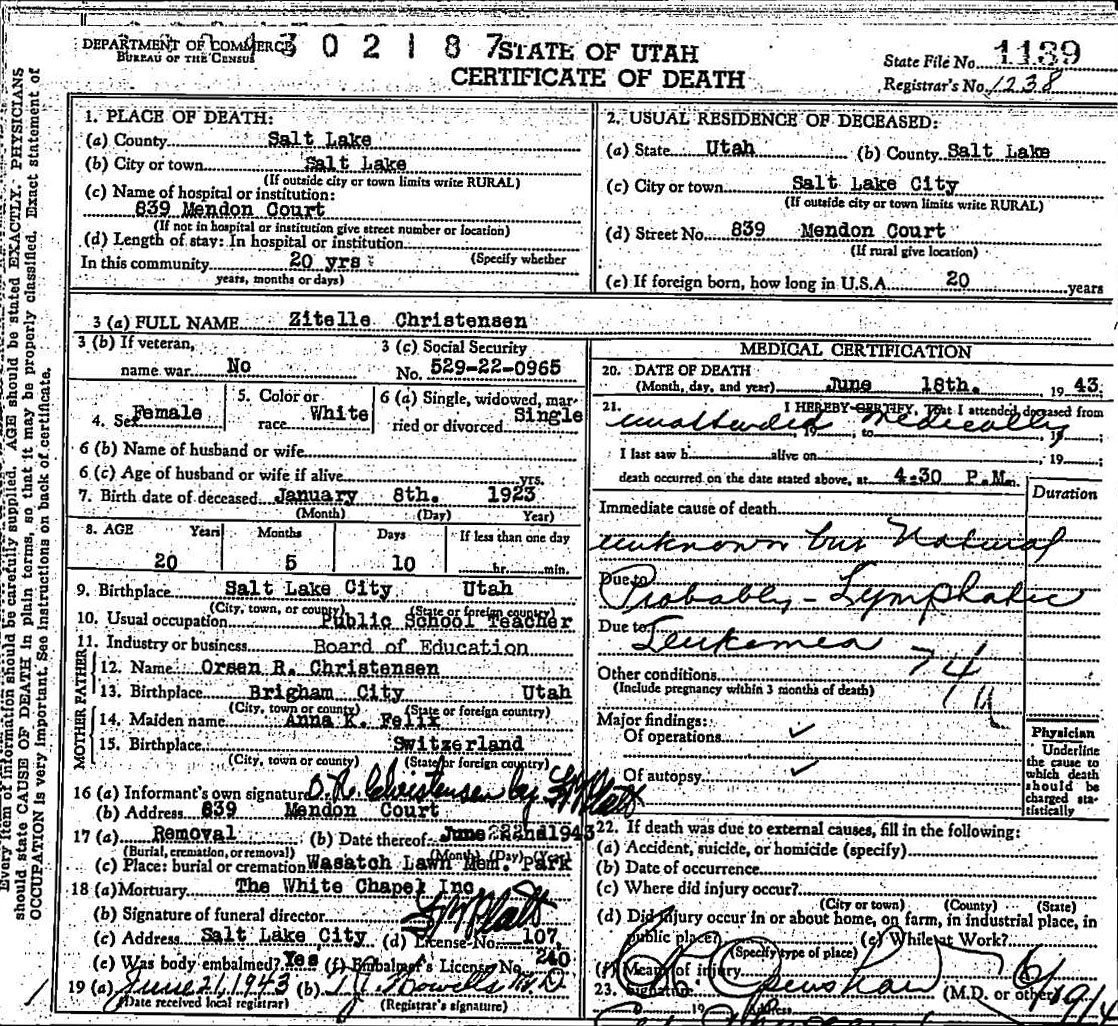 DEPARTMENT OF COMMERCE
BUREAU OF THE CENSUS
4302187
STATE OF UTAH
CERTIFICATE OF DEATH
State File No. 1139
Registrar's No. 1238
Every item of information should be carefully supplied. AGE should be stated EXACTLY. PHYSICIANS
should state CAUSE OF DEATH in plain terms, so that it may be properly classified. Exact statement of
OCCUPATION is very important. See instructions on back of certificate.
1. PLACE OF DEATH:
(a) County Salt Lake
(b) City or town Salt Lake
(If outside city or town limits write RURAL)
(c) Name of hospital or institution:
839 Mendon Court
(If not in hospital or institution give street number or location)
(d) Length of stay: In hospital or institution
In this community 20 yrs (Specify whether
years, months or days)
2. USUAL RESIDENCE OF DECEASED:
(a) State Utah (b) County Salt Lake
(c) City or town Salt Lake City
(If outside city or town limits write RURAL)
(d) Street No. 839 Mendon Court
(If rural give location)
(e) If foreign born, how long in U.S.A. 20 years
3 (a) FULL NAME Zitelle Christensen
3 (b) If veteran,
name war No
3 (c) Social Security
No. 529-22-0965
4. Sex Female
5. Color or
race White
6 (a) Single, widowed, mar-
ried or divorced Single
6 (b) Name of husband or wife
6 (c) Age of husband or wife if alive yrs.
7. Birth date of deceased January 8th. 1923
(Month) (Day) Year)
8. AGE Years Months Days If less than one day
20 5 10 hr. min.
9. Birthplace Salt Lake City Utah
(City, town, or county) (State or foreign country)
10. Usual occupation Public School Teacher
11. Industry or business Board of Education
FATHER
12. Name Orsen R. Christensen
13. Birthplace Brigham City Utah
(City, town or county) (State or foreign country)
MOTHER
14. Maiden name Anna K. Felix
15. Birthplace Switzerland
(City, town or county) (State or foreign country)
16 (a) Informant's own signature O. R. Christensen by
(b) Address 839 Mendon Court
17 (a) Removal (b) Date thereof June 22nd 1943
(Burial, cremation, or removal) (Month) (Day) (Year)
(c) Place: burial or cremation Wasatch Lawn Mem. Park
18 (a) Mortuary The White Chapel Inc
(b) Signature of funeral director
(c) Address Salt Lake City (d) License No. 107
(e) Was body embalmed? Yes (f) Embalmer's License No. 240
19 (a) June 21, 1943 (b) Howells M.D
(Date received local registrar) (Registrar's signature)
MEDICAL CERTIFICATION
20. DATE OF DEATH
(Month, day, and year) June 18th. 1943.
21. I HEREBY CERTIFY, That I attended deceased from
unattended medically, 19 , to , 19 ;
I last saw h alive on , 19 ;
death occurred on the date stated above, at 4:30 P.M.
Duration
Immediate cause of death
unknown but Natural
Due to
Probably - Lymphatic
Due to
Leukemea
74
Other conditions
(Include pregnancy within 3 months of death)
Major findings:
Of operations ✓
Of autopsy ✓
Physician
Underline
the cause to
which death
should be
charged sta-
tistically
22. If death was due to external causes, fill in the following:
(a) Accident, suicide, or homicide (specify)
(b) Date of occurrence
(c) Where did injury occur?
(City or town) (County) (State)
(d) Did injury occur in or about home, on farm, in industrial place, in
public place? (e) While at Work?
(Specify type of place)
(f) Means of injury
23. Signature (M.D. or other)
Address